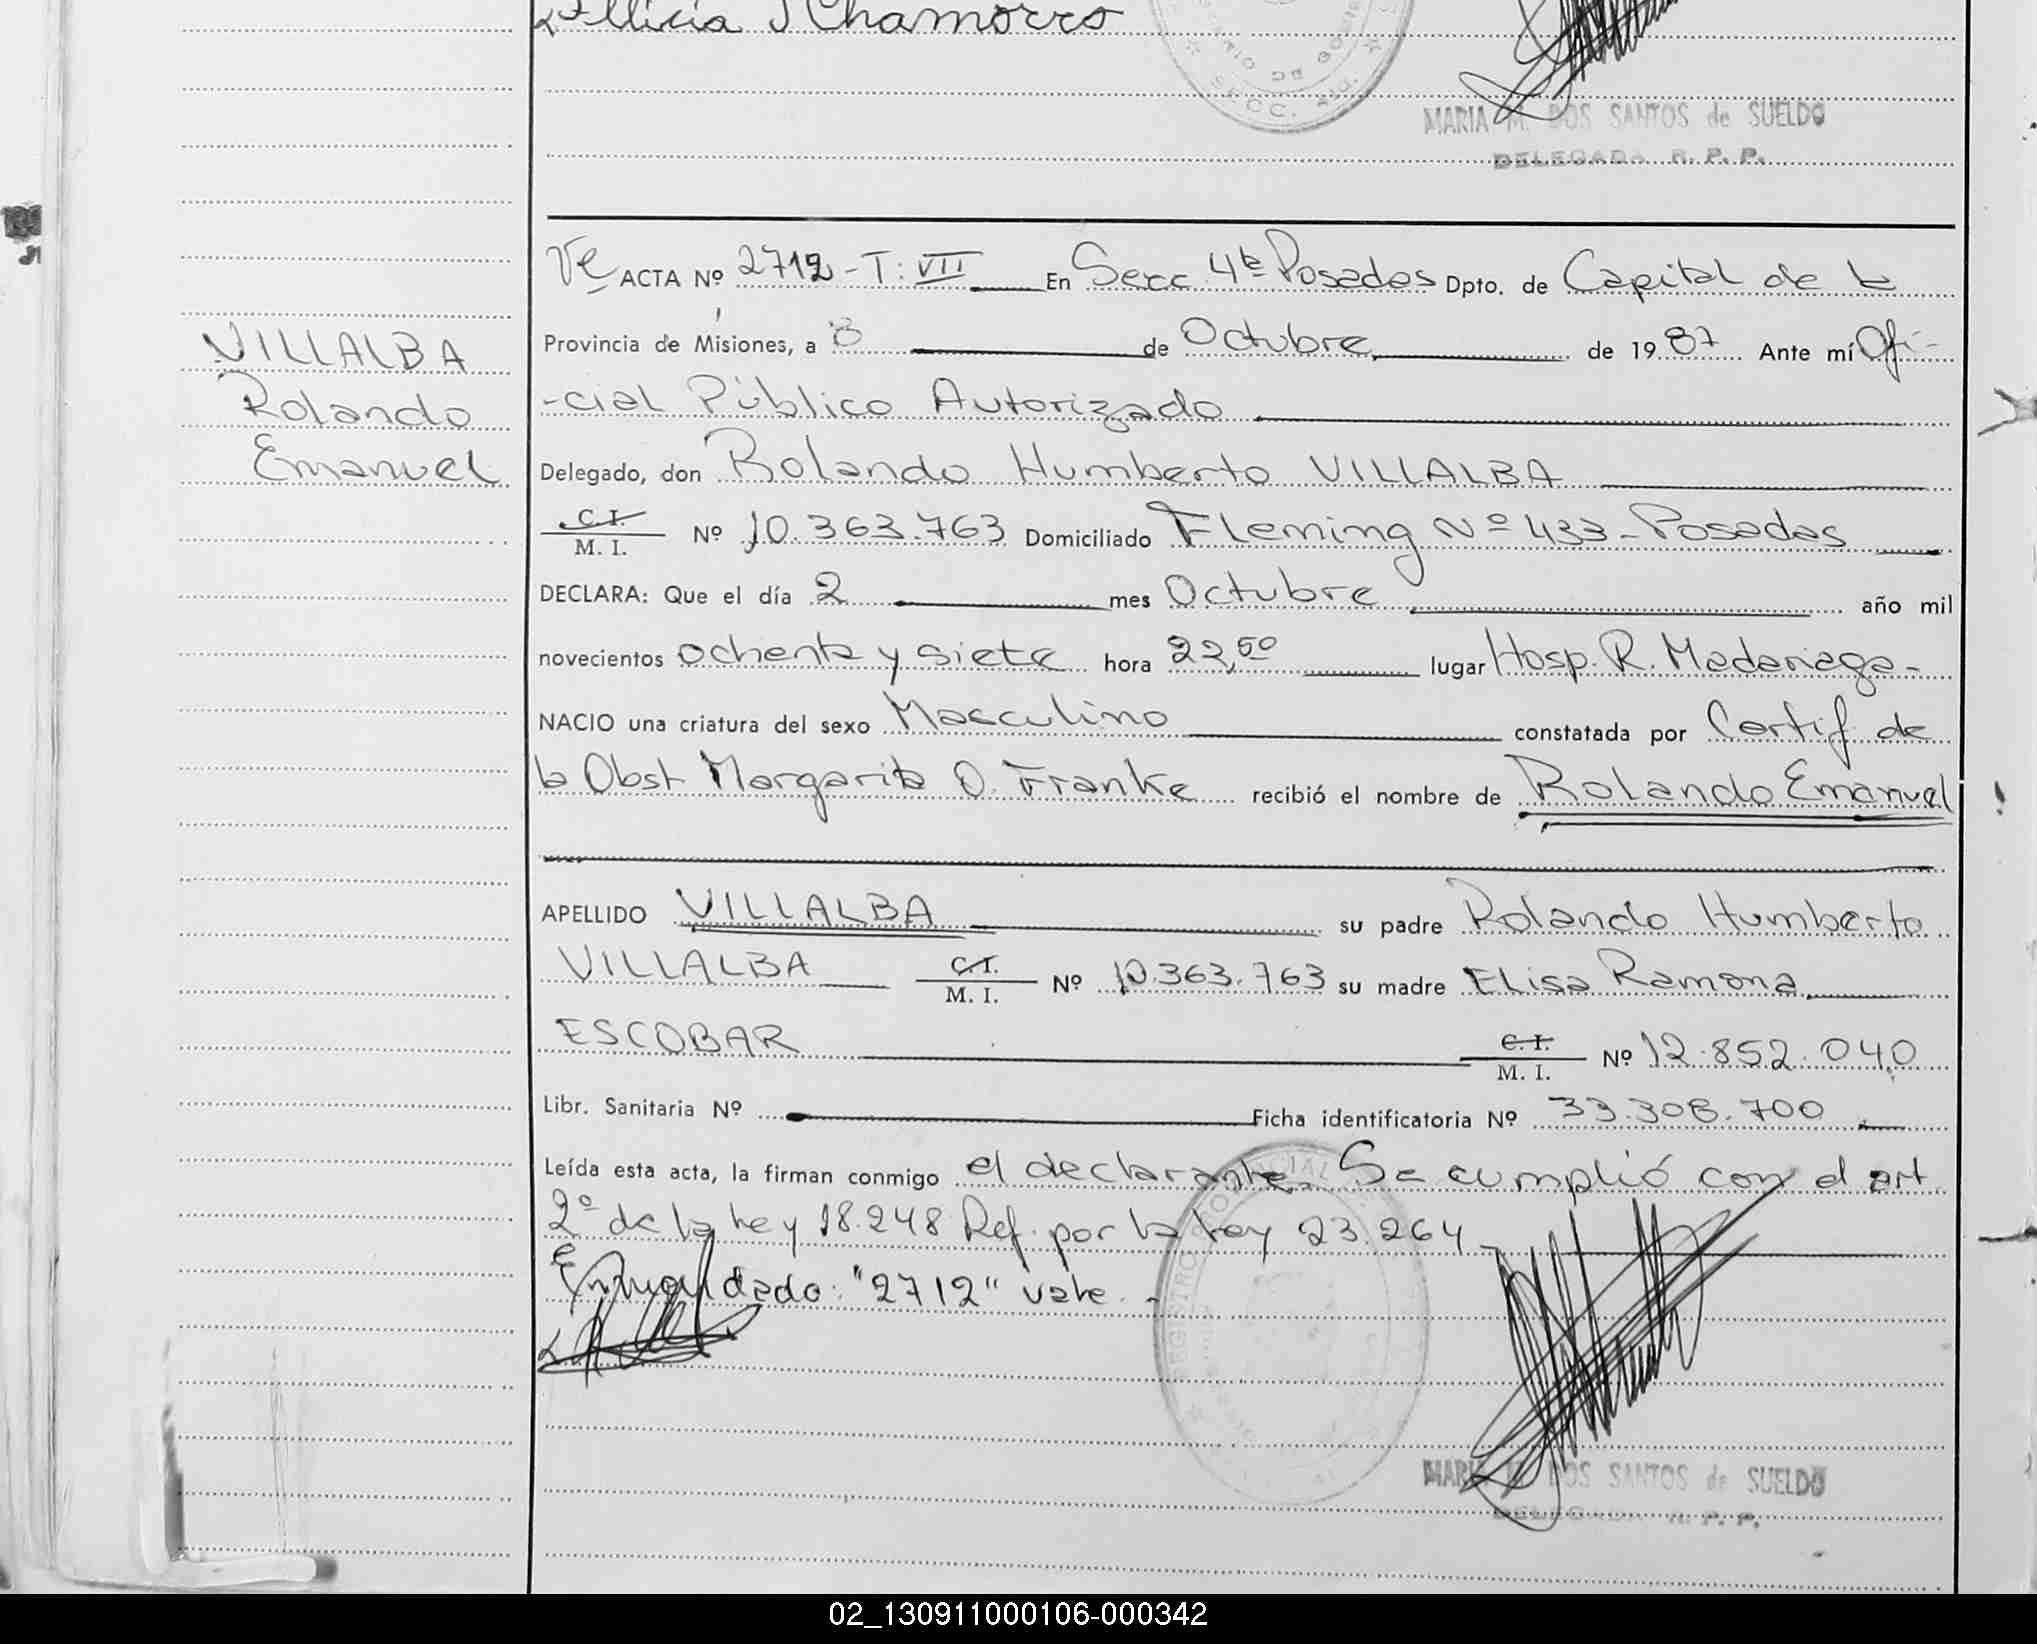 Allicia J Chamorro
SECC. 4ta.
MARIA M. DOS SANTOS de SUELDO
DELEGADA R. P. P.
Ve ACTA Nº 2712 - T: VII En Secc 4ta Posadas Dpto. de Capital de la
Provincia de Misiones, a 8 de Octubre de 1987 Ante mí Ofi-
-cial Público Autorizado
Delegado, don Rolando Humberto VILLALBA
C.I.
M. I. Nº 10.363.763 Domiciliado Fleming Nº 433 - Posadas
DECLARA: Que el día 2 mes Octubre año mil
novecientos ochenta y siete hora 22,50 lugar Hosp. R. Madariaga-
NACIO una criatura del sexo Masculino constatada por Certif de
la Obst Margarita O. Franke recibió el nombre de Rolando Emanuel
APELLIDO VILLALBA su padre Rolando Humberto
VILLALBA C.I. M. I. Nº 10.363.763 su madre Elisa Ramona
ESCOBAR C.I. M. I. Nº 12.852.040
Libr. Sanitaria Nº Ficha identificatoria Nº 33.308.700
Leída esta acta, la firman conmigo el declarante. Se cumplió con el art
2º de la ley 18.248 Ref. por la ley 23.264
Enmendado: "2712" vale. -
MARIA M. DOS SANTOS de SUELDO
DELEGADA R. P. P.
VILLALBA
Rolando
Emanuel
02_130911000106-000342